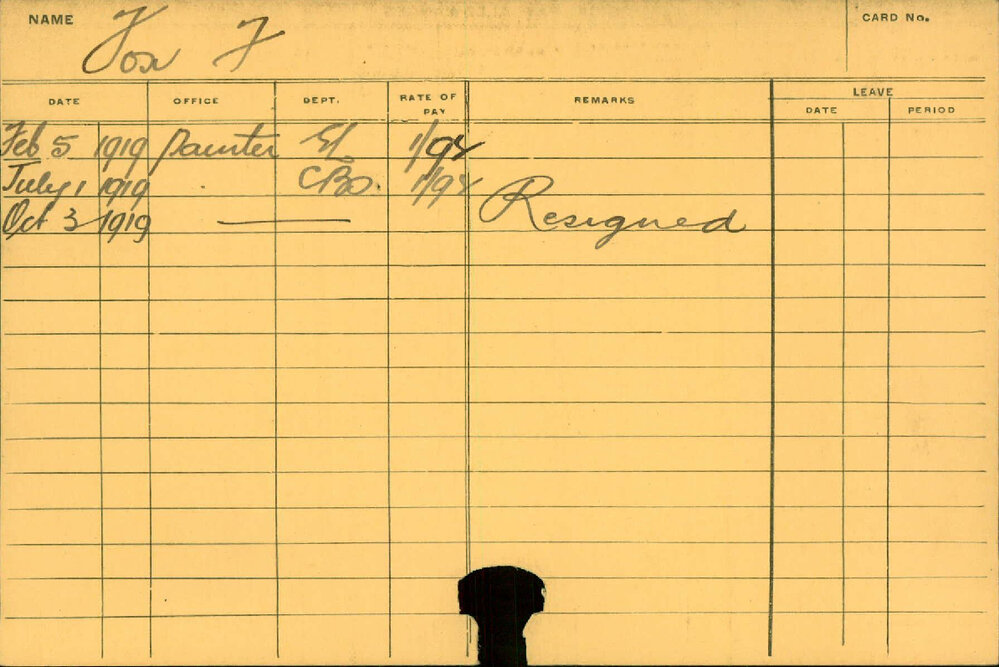 NAME Fox F CARD No.
DATE OFFICE DEPT. RATE OF PAY REMARKS LEAVE
DATE PERIOD
Feb 5 1919 Painter EL
July 1 1919 CBO.
Oct 3 1919 — Resigned